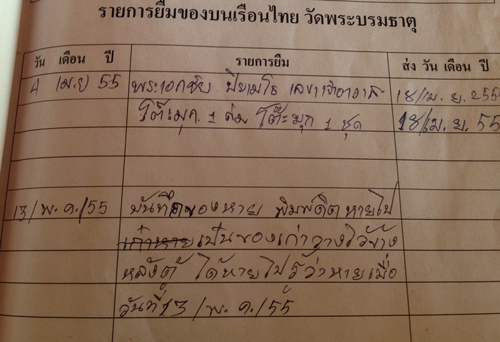 รายการยืมของบนเรือนไทย วัดพระบรมธาตุ
วัน เดือน ปี รายการยืม ส่ง วัน เดือน ปี
4 เม.ย 55 พระเอกชัย ปิยเมโธ เลขาเจ้าอาวาส 18/เม.ย. 255
โต๊ะมุก 1 ตัว โต๊ะมุก 1 ชุด 18/เม.ย. 55
13/พ.ค./55 บันทึกของหาย พิมพ์ดีดหายไป
เก่าหายเป็นของเก่าวางไว้ข้าง
หลังตู้ ได้หายไปรู้ว่าหายเมื่อ
วันที่ 13/พ.ค./55